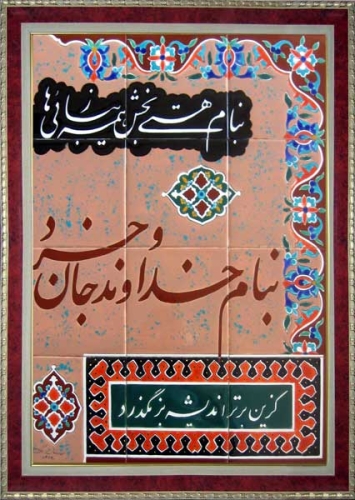 بنام هستی بخش همه زیبائی ها
بنام خداوند جان و خرد
کزین برتر اندیشه برنگذرد